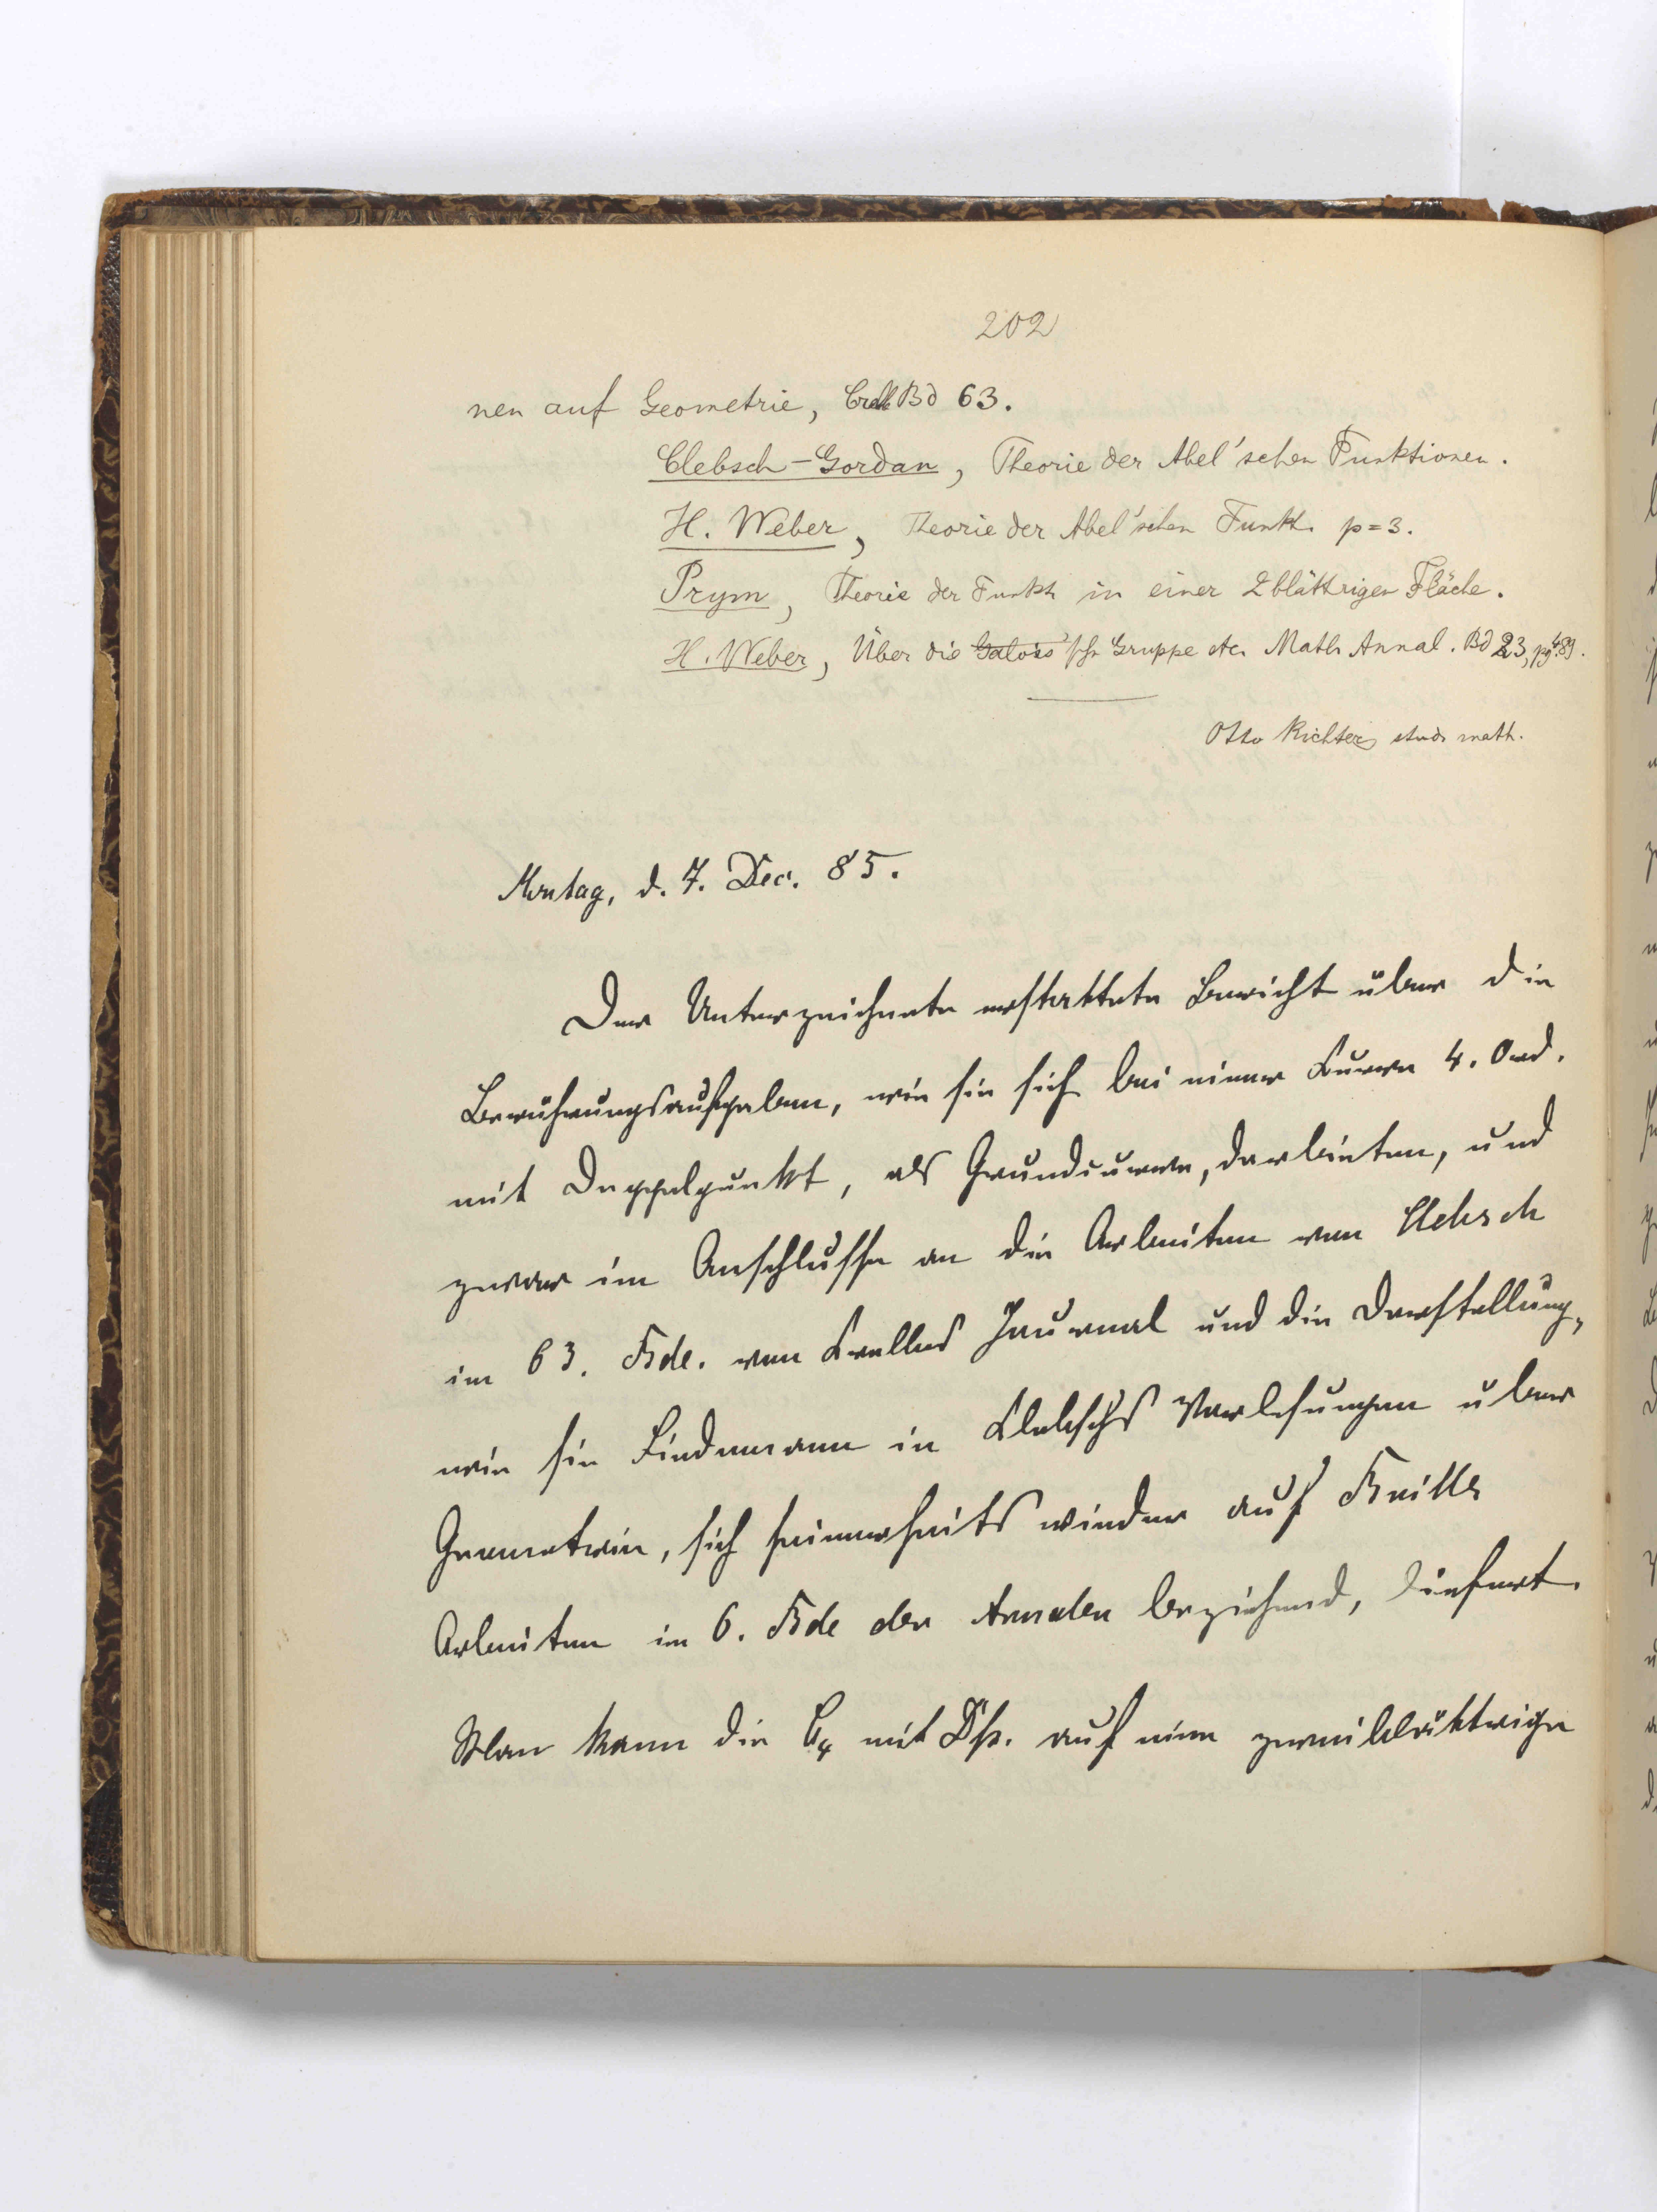 202
nen auf Geometrie, Crelle Bd 63.
Clebsch-Gordan, Theorie der Abel'schen Funktionen.
H. Weber, Theorie der Abel'schen Funkt. p=3.
Prym, Theorie der Funkt. in einer 2blättrigen Fläche.
H. Weber, Über die Galois'sche Gruppe etc. Math. Annal. Bd 23, pg 489.
Otto Richter, stud. math.
Montag, d. 7. Dec. 85.
Der Unterzeichnete erstattete Bericht über die
Berührungsaufgaben, wie sie sich bei einer Kurve 4. Ord.
mit Doppelpunkt, als Grundcurve, darbieten, und
zwar im Anschlusse an die Arbeiten von Clebsch
im 63. Bde. von Crelles Journal und die Darstellung,
wie sie Lindemann in Clebschs Vorlesungen über
Geometrie, sich seinerseits wieder auf Brills
Arbeiten im 6. Bde der Annalen beziehend, liefert.
Man kann die C4 mit Dp. auf eine zweiblättrige